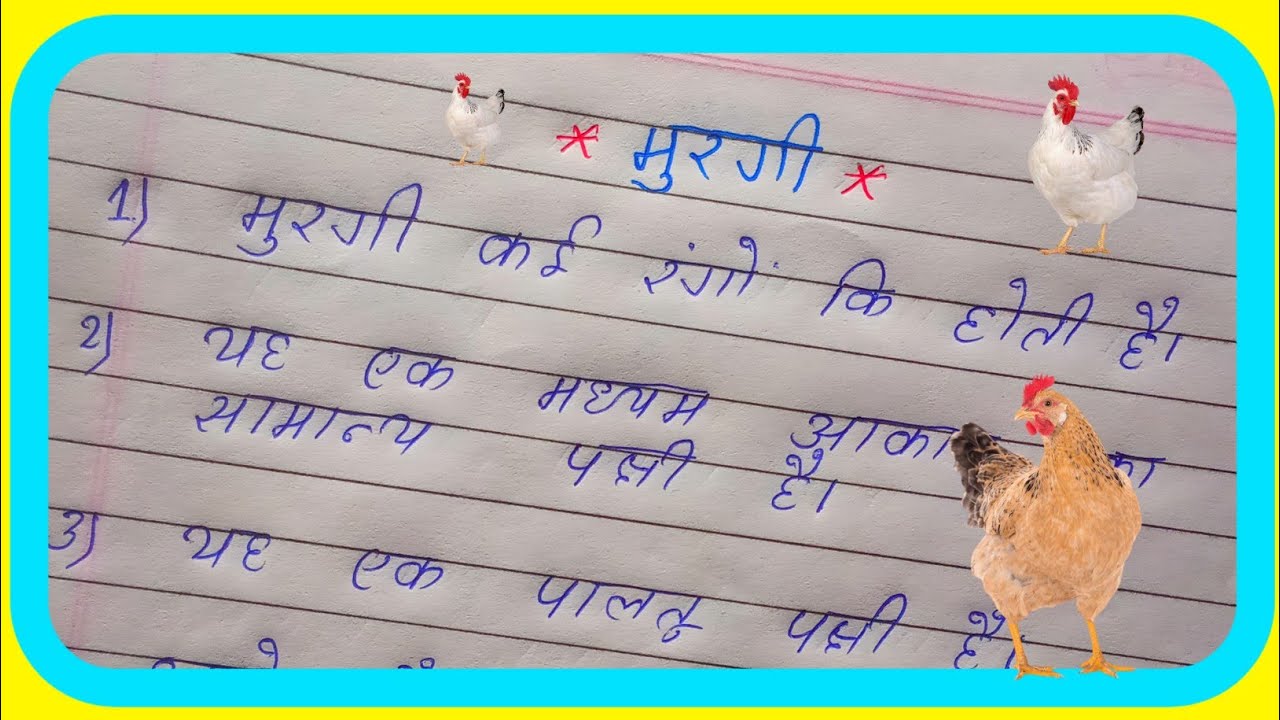 * मुरगी *
1) मुरगी कई रंगों कि होती है।
2) यह एक मध्यम का
सामान्य पक्षी है।
3) यह एक पालतू पक्षी है।